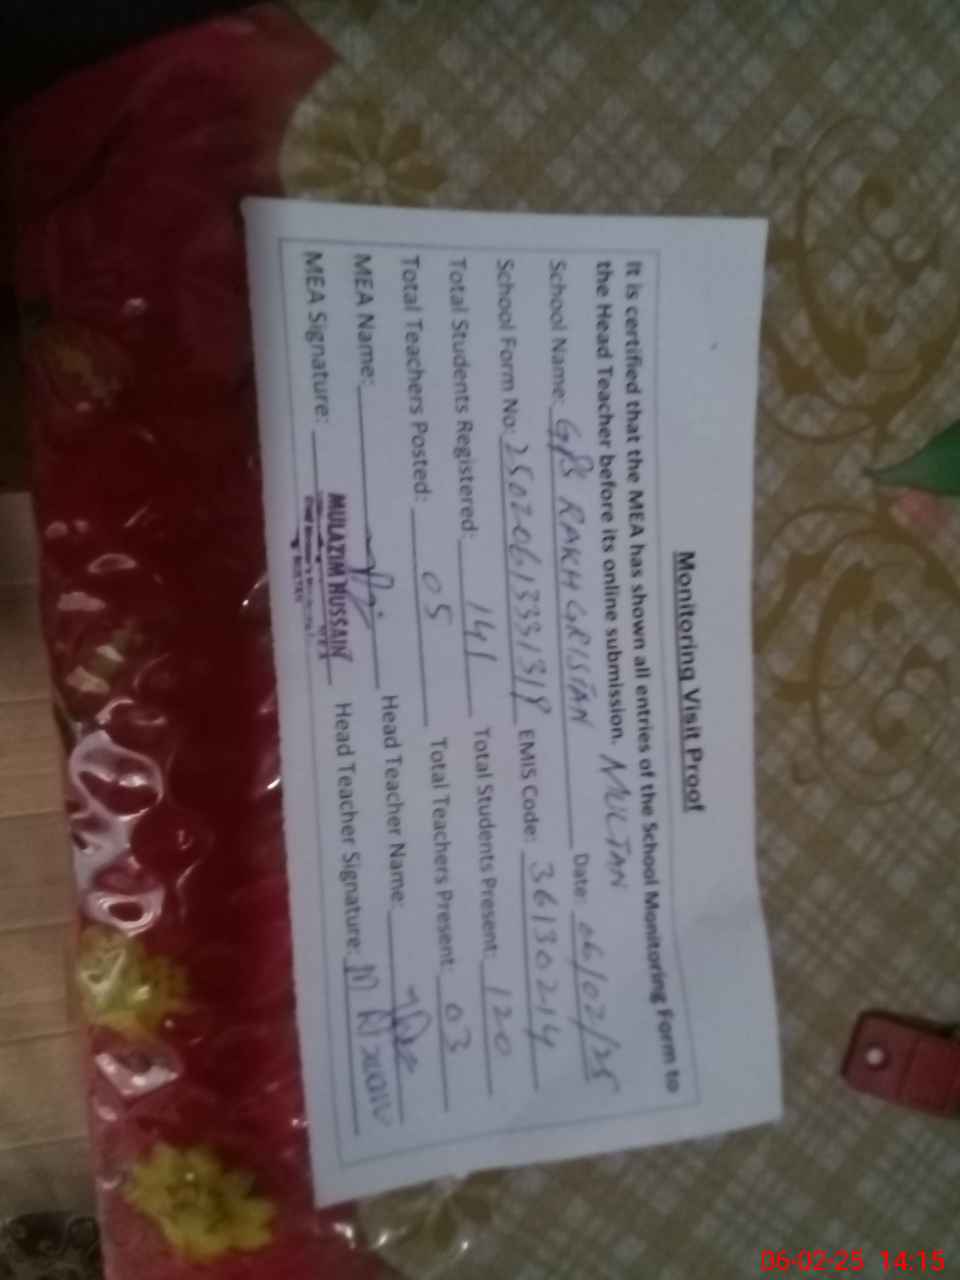 Monitoring Visit Proof
It is certified that the MEA has shown all entries of the School Monitoring Form to
the Head Teacher before its online submission. MULTAN
School Name: GPS RAKH GRISTAN Date: 06/02/25
School Form No: EMIS Code: 36130214
Total Students Registered: 141 Total Students Present: 120
Total Teachers Posted: 05 Total Teachers Present: 03
MEA Name: Head Teacher Name:
MEA Signature: MULAZIM HUSSAIN Head Teacher Signature:
06-02-25 14:15